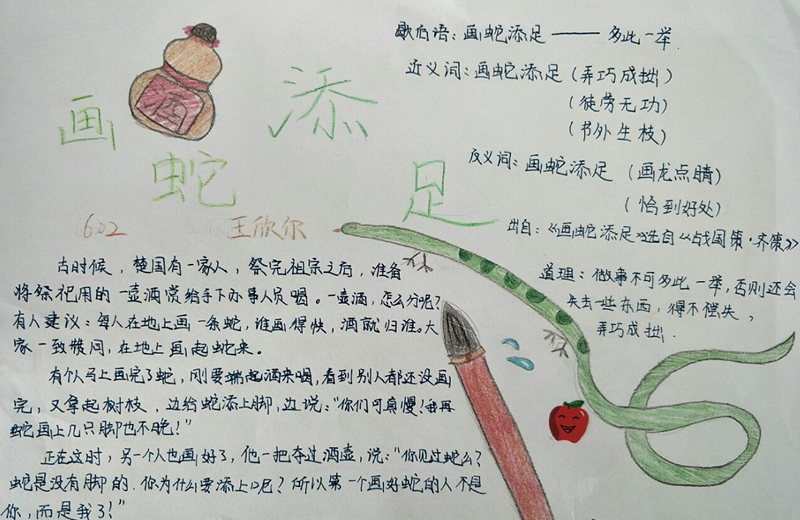 画蛇添足
酒
602 王欣尔
歇后语：画蛇添足——多此一举
近义词：画蛇添足（弄巧成拙）
（徒劳无功）
（节外生枝）
反义词：画蛇添足（画龙点睛）
（恰到好处）
出自：《画蛇添足》选自《战国策·齐策》
道理：做事不可多此一举，否则还会
失去一些东西，得不偿失，
弄巧成拙．
古时候，楚国有一家人，祭完祖宗之后，准备
将祭祀用的一壶酒赏给手下办事人员喝。一壶酒，怎么分呢？
有人建议：每人在地上画一条蛇，谁画得快，酒就归谁。大
家一致赞同，在地上画起蛇来。
有个人马上画完了蛇，刚要端起酒来喝，看到别人都还没画
完，又拿起树枝，边给蛇添上脚，边说：“你们可真慢！我再
蛇画上几只脚也不晚！”
正在这时，另一个人也画好了，他一把夺过酒壶，说：“你见过蛇么？
蛇是没有脚的．你为什么要添上呢？所以第一个画好蛇的人不是
你，而是我了！”